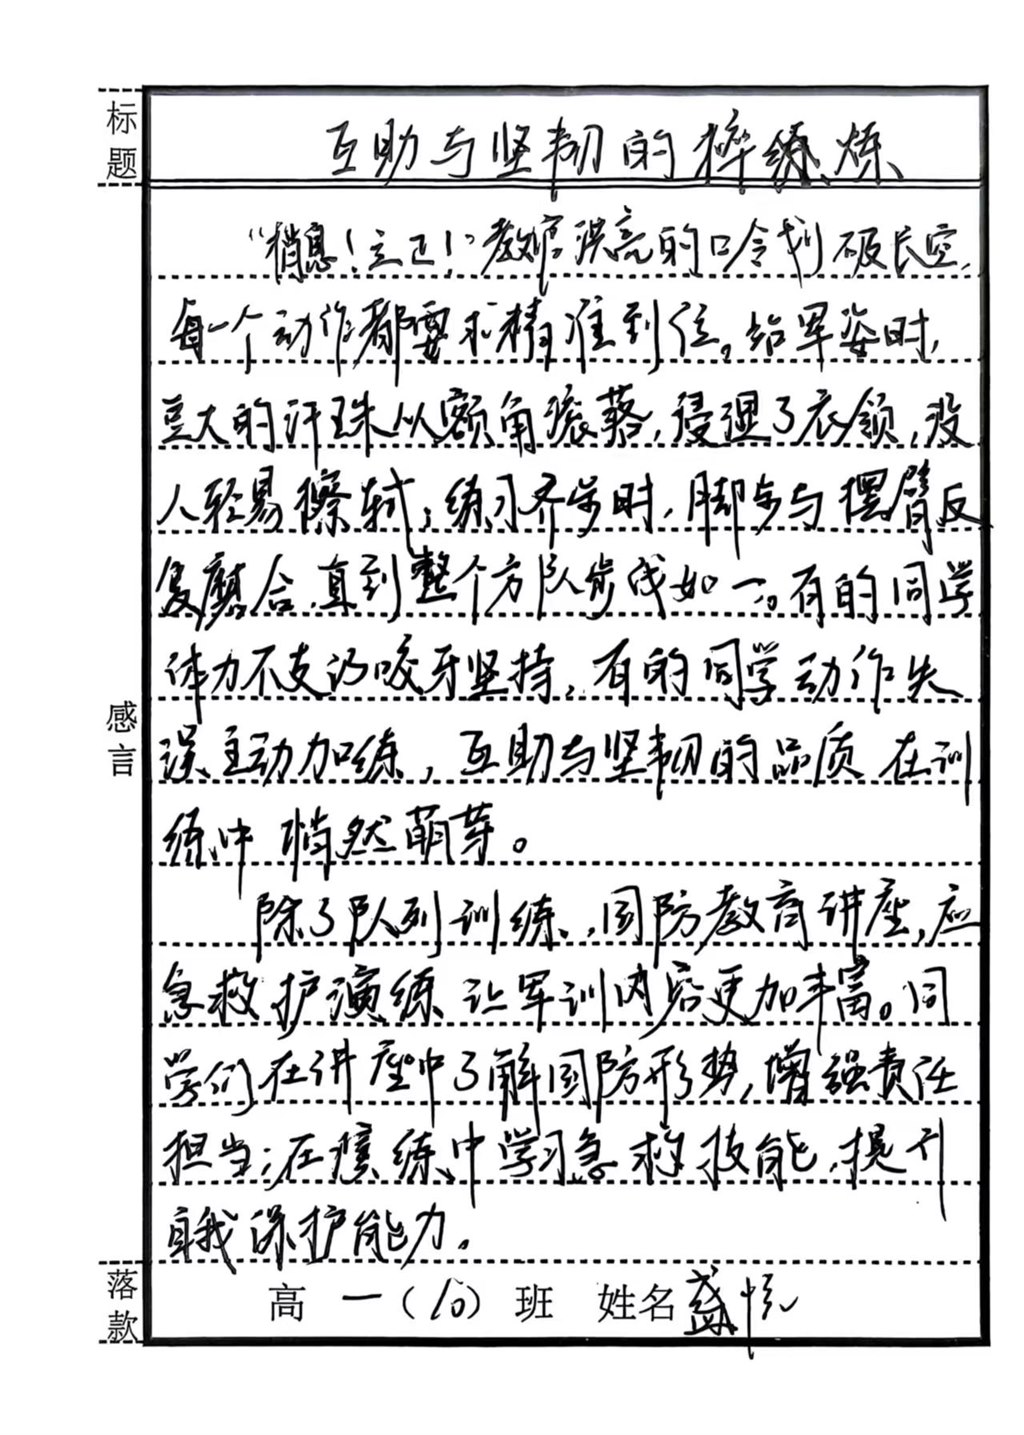 标题
互助与坚韧的粹练炼
“稍息！立正！”教官洪亮的口令划破长空，
每一个动作都要求精准到位。站军姿时，
豆大的汗珠从额角滚落，浸湿了衣领，没
人轻易擦拭；练习齐步时，脚步与摆臂反
复磨合，直到整个方队步伐如一。有的同学
体力不支仍咬牙坚持，有的同学动作失
误主动加练，互助与坚韧的品质在训
练中悄然萌芽。
除了队列训练，国防教育讲座，应
急救护演练让军训内容更加丰富。同
学们在讲座中了解国防形势，增强责任
担当；在演练中学习急救技能，提升
自我保护能力。
感言
落款
高一（10）班 姓名盛